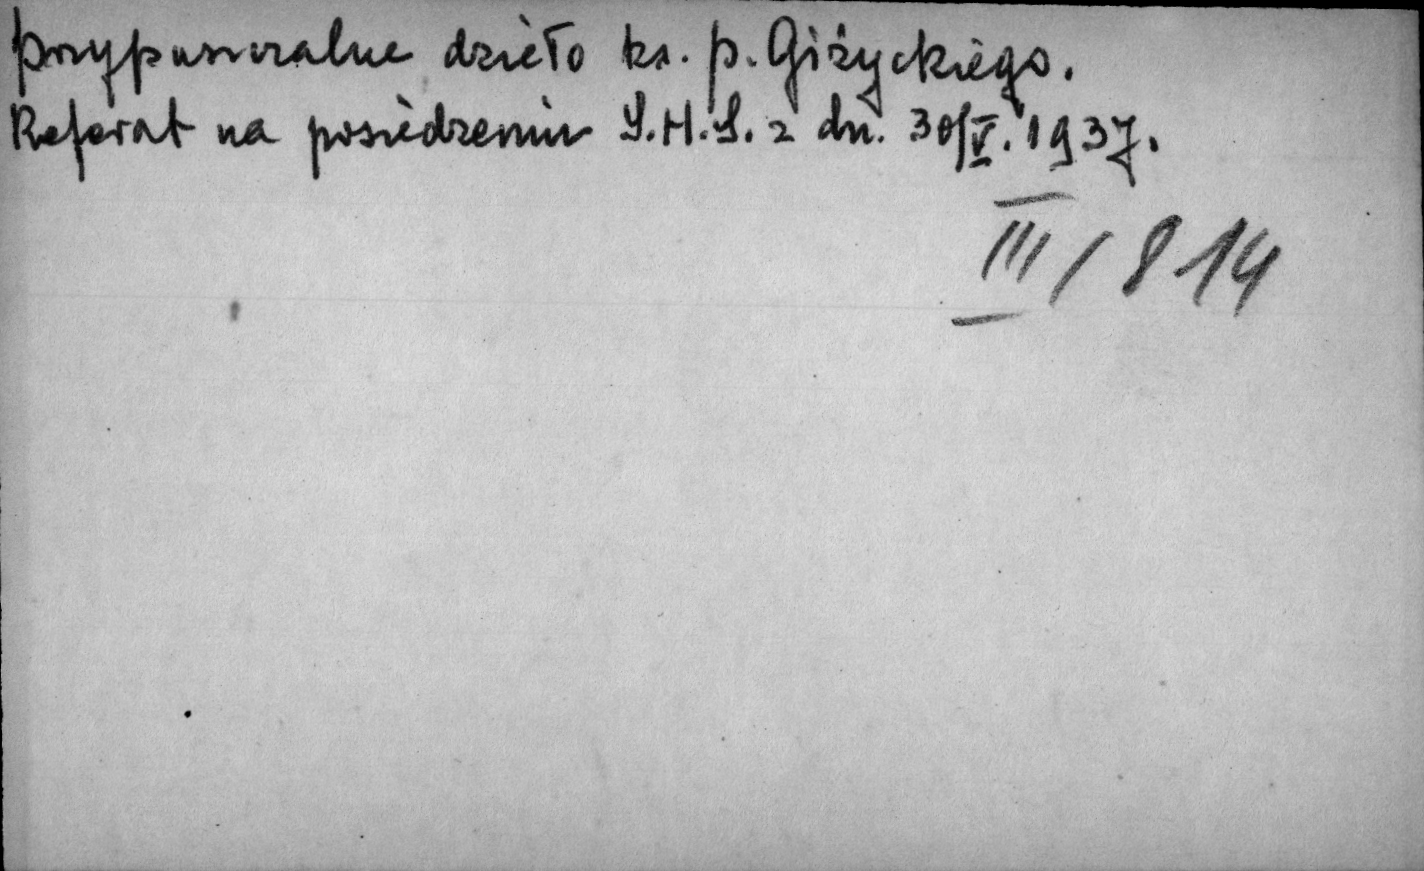 przypuszczalne dzieło ks. p. Giżyckiego.
Referat na posiedzeniu S.H.S. z dn. 30/V. 1937.
III/814